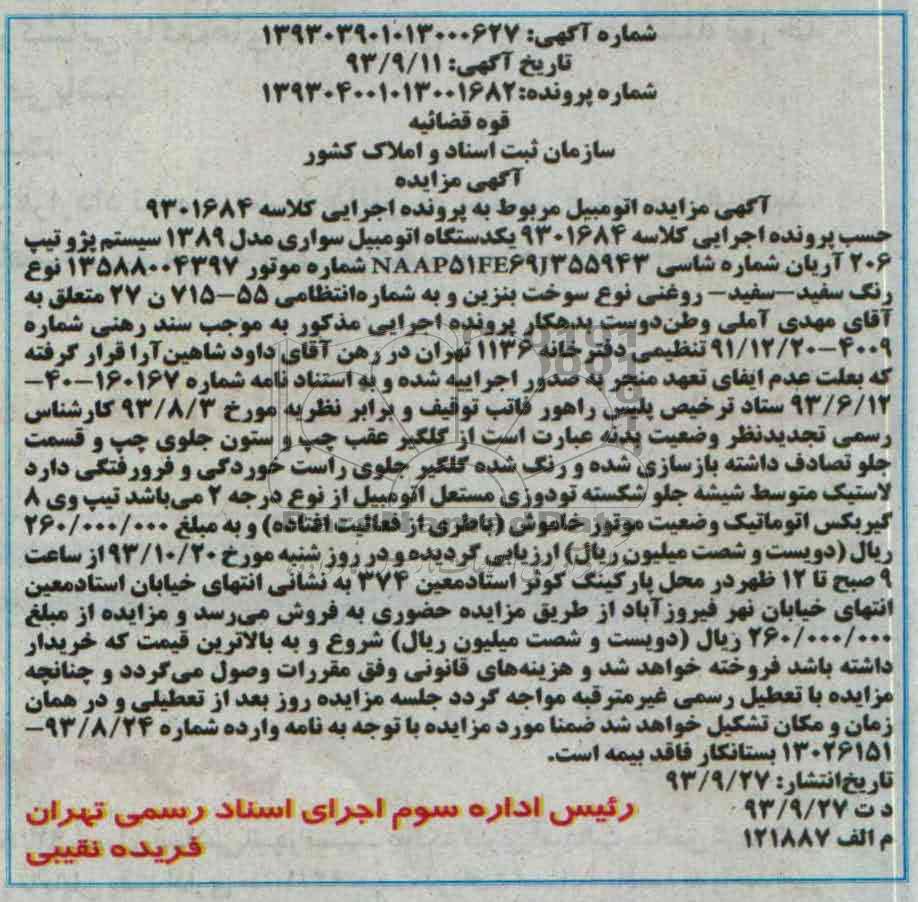 شماره آگهی: ۱۳۹۳۰۳۹۰۱۰۱۳۰۰۰۶۲۷
تاریخ آگهی: ۹۳/۹/۱۱
شماره پرونده:۱۳۹۳۰۴۰۰۱۰۱۳۰۰۱۶۸۲
قوه قضائیه
سازمان ثبت اسناد و املاک کشور
آگهی مزایده
آگهی مزایده اتومبیل مربوط به پرونده اجرایی کلاسه ۹۳۰۱۶۸۴
حسب پرونده اجرایی کلاسه ۹۳۰۱۶۸۴ یکدستگاه اتومبیل سواری مدل ۱۳۸۹ سیستم پژو تیپ
۲۰۶ آریان شماره شاسی NAAP۵۱FE۶۹J۳۵۵۹۴۳ شماره موتور ۱۳۵۸۸۰۰۴۳۹۷ نوع
رنگ سفید-سفید- روغنی نوع سوخت بنزین و به شماره‌انتظامی ۵۵-۷۱۵ ن ۲۷ متعلق به
آقای مهدی آملی وطن‌دوست بدهکار پرونده اجرایی مذکور به موجب سند رهنی شماره
۴۰۰۹-۹۱/۱۲/۲۰ تنظیمی دفترخانه ۱۱۳۶ تهران در رهن آقای داود شاهین‌آرا قرار گرفته
که بعلت عدم ایفای تعهد منجر به صدور اجراییه شده و به استناد نامه شماره ۱۶۰۱۶۷-۴۰-
۹۳/۶/۱۲ ستاد ترخیص پلیس راهور فاتب توقیف و برابر نظریه مورخ ۹۳/۸/۳ کارشناس
رسمی تجدیدنظر وضعیت بدنه عبارت است از گلگیر عقب چپ و ستون جلوی چپ و قسمت
جلو تصادف داشته بازسازی شده و رنگ شده گلگیر جلوی راست خوردگی و فرورفتگی دارد
لاستیک متوسط شیشه جلو شکسته تودوزی مستعل اتومبیل از نوع درجه ۲ می‌باشد تیپ وی ۸
گیربکس اتوماتیک وضعیت موتور خاموش (باطری از فعالیت افتاده) و به مبلغ ۲۶۰/۰۰۰/۰۰۰
ریال (دویست و شصت میلیون ریال) ارزیابی گردیده و در روز شنبه مورخ ۹۳/۱۰/۲۰ از ساعت
۹ صبح تا ۱۲ ظهر در محل پارکینگ کوثر استادمعین ۳۷۴ به نشانی انتهای خیابان استادمعین
انتهای خیابان نهر فیروزآباد از طریق مزایده حضوری به فروش می‌رسد و مزایده از مبلغ
۲۶۰/۰۰۰/۰۰۰ ریال (دویست و شصت میلیون ریال) شروع و به بالاترین قیمت که خریدار
داشته باشد فروخته خواهد شد و هزینه‌های قانونی وفق مقررات وصول می‌گردد و چنانچه
مزایده با تعطیل رسمی غیرمترقبه مواجه گردد جلسه مزایده روز بعد از تعطیلی و در همان
زمان و مکان تشکیل خواهد شد ضمنا مورد مزایده با توجه به نامه وارده شماره ۹۳/۸/۲۴-
۱۳۰۲۶۱۵۱ بستانکار فاقد بیمه است.
تاریخ‌انتشار: ۹۳/۹/۲۷
د ت ۹۳/۹/۲۷
م الف ۱۲۱۸۸۷
رئیس اداره سوم اجرای اسناد رسمی تهران
فریده نقیبی